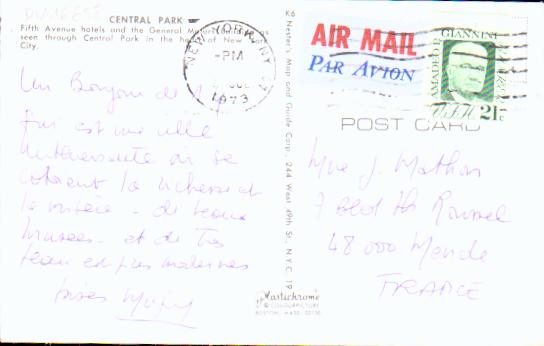 CENTRAL PARK
Fifth Avenue hotels and the General Motors
seen through Central Park in the heart of New
City.
K6 Nester's Map and Guide Corp., 244 West 49th St., N.Y.C. 19
NEW YORK, NY
-PM
1973
AIR MAIL
PAR AVION
AMADEO P. GIANNINI
21c
POST CARD
Un Bonjour de N.Y.
qui est une ville
intéressante où se
cotoient la richesse et
la misère - de beaux
musées - et de très
beaux
Bises
Mme J. Mathieu
7 Bld Th Roussel
48 000 Mende
FRANCE
Plastichrome
BY COLOURPICTURE
BOSTON, MASS. 02130